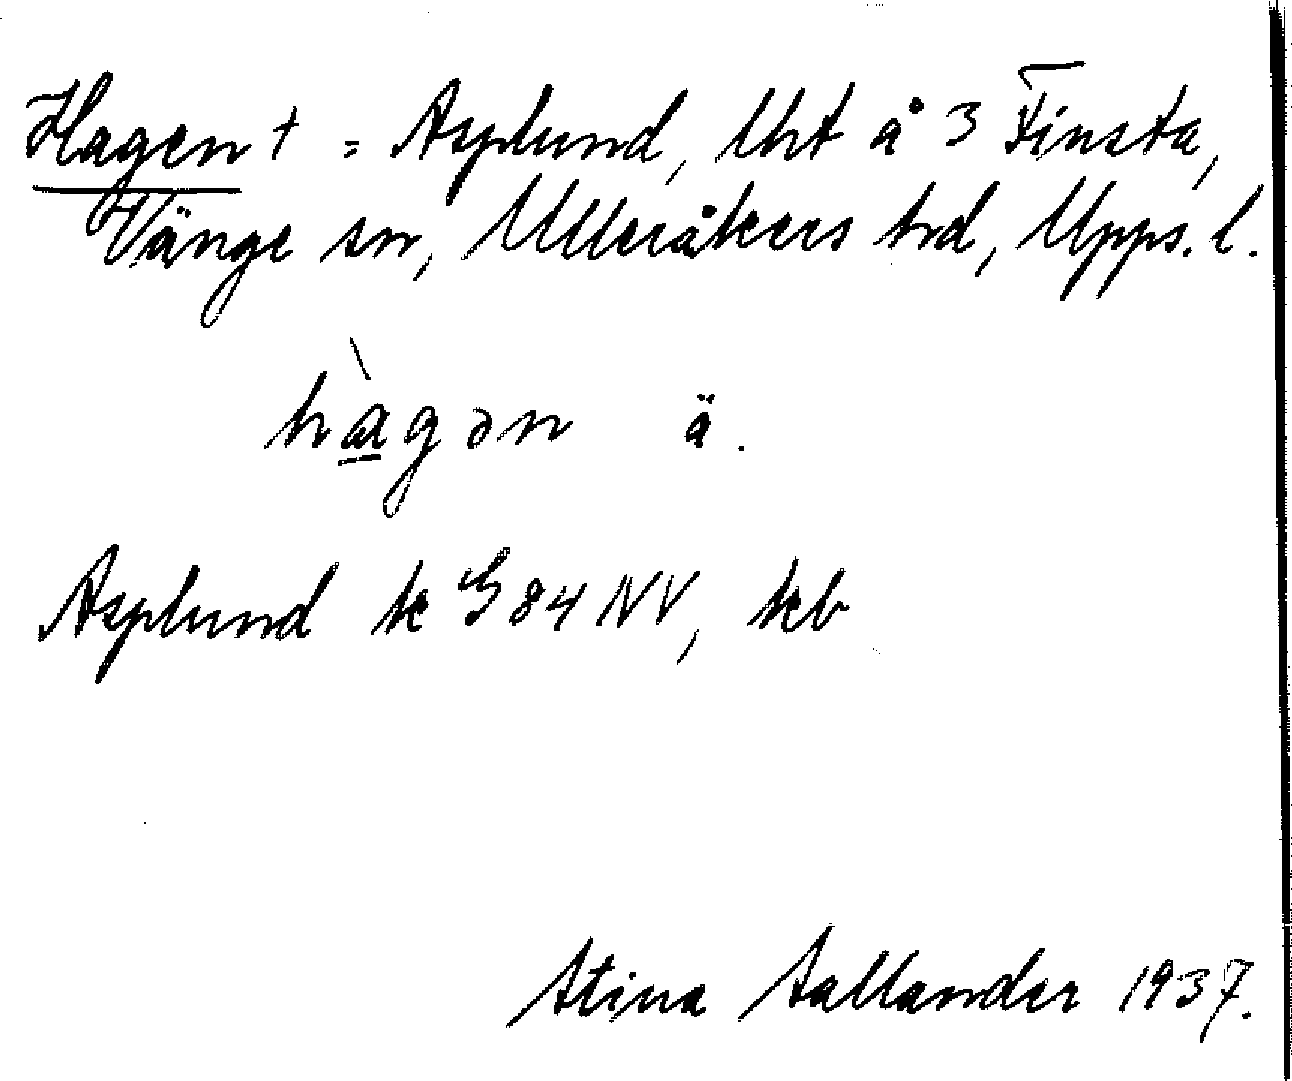 Hagen † = Asplund, lht å 3 Finsta,
Vänge sn, Ulleråkers hd, Upps. l.
hàgən ä.
Asplund k G 84 NV, kb
Stina Sallander 1937.